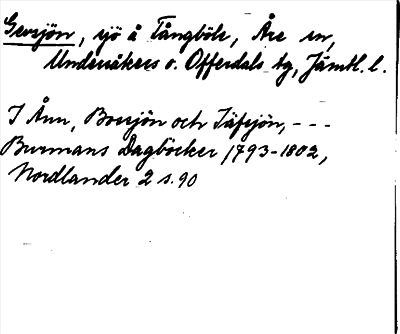 Gevsjön, sjö å Tångböle, Åre sn,
Undersåkers o. Offerdals tg, Jämtl. l.
I Ånn, Bossjön och Jäfsjön, - - -
Burmans Dagböcker 1793-1802,
Nordlander 2 s. 90